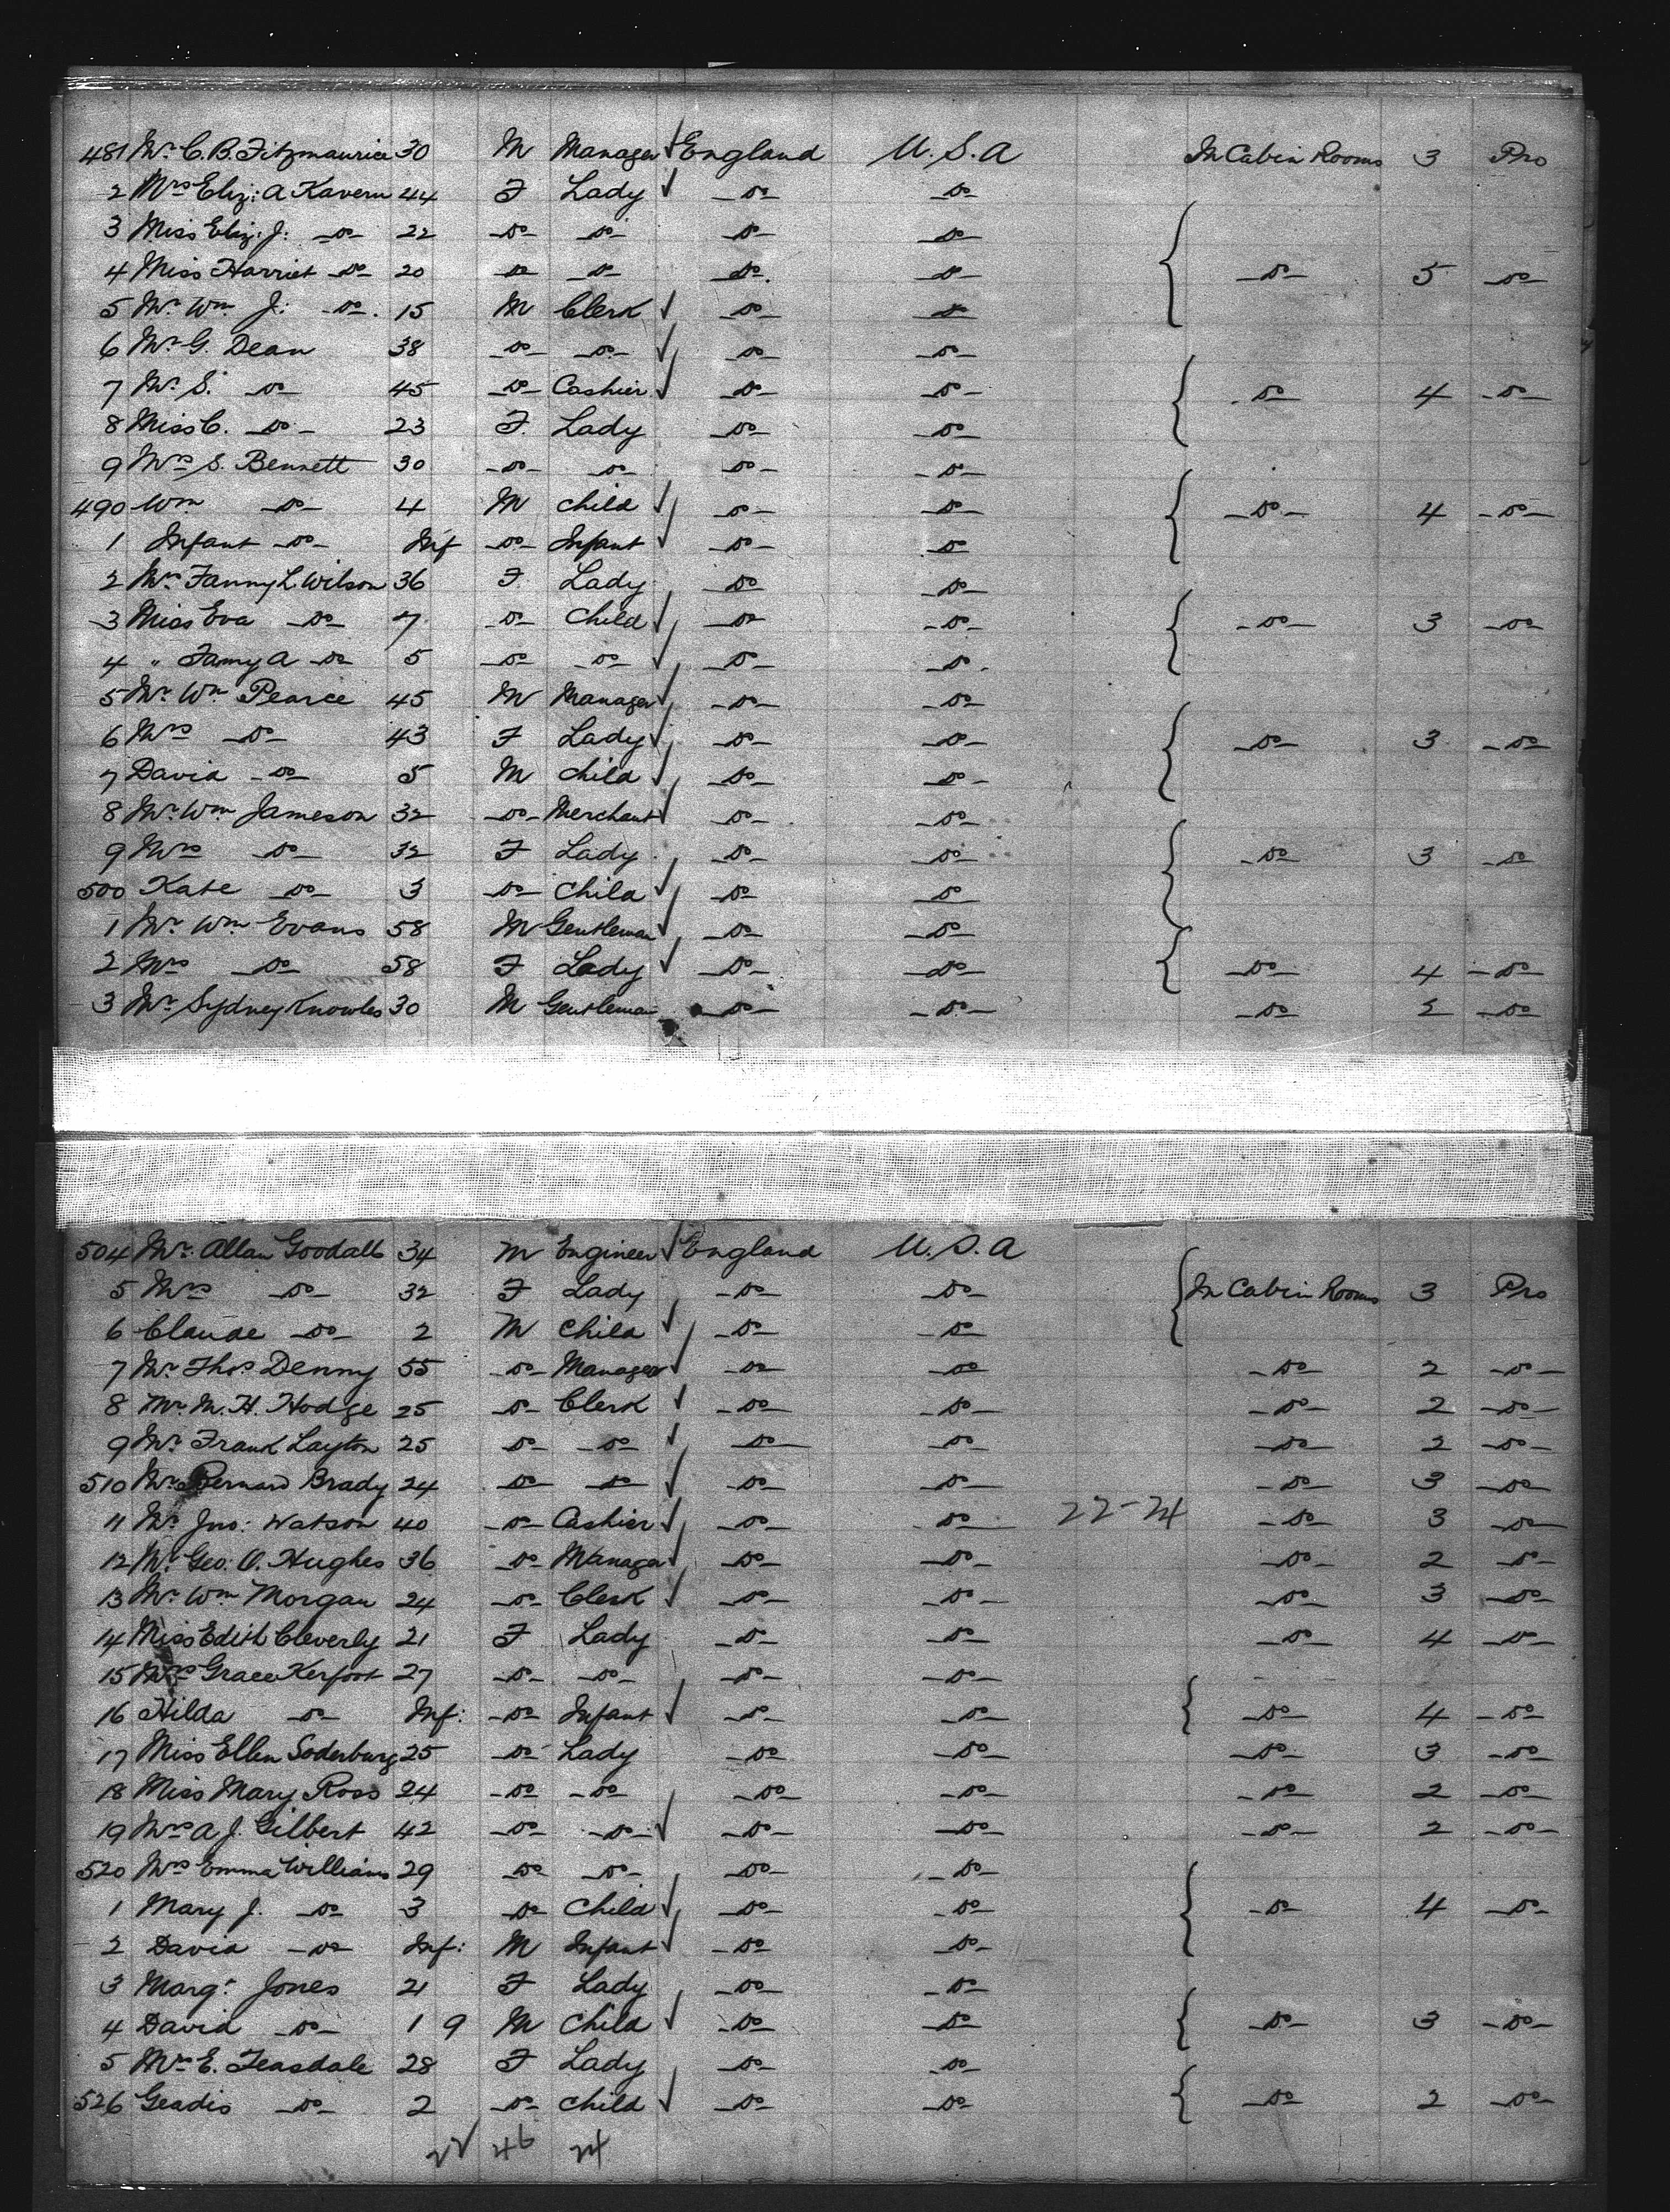 481 Mr. C. B. Fitzmaurice 30 M Manager ✓ England U.S.A In Cabin Rooms 3 Pro
2 Mrs Eliz: A Kavern 44 F Lady ✓ -do- -do-
3 Miss Eliz: J: -do- 22 -do- -do- -do- -do-
4 Miss Harriet -do- 20 -do- -do- -do- -do- -do- 5 -do-
5 Mr. Wm J: -do- 15 M Clerk ✓ -do- -do-
6 Mr. G. Dean 38 -do- -do- ✓ -do- -do-
7 Mr. S. -do- 45 -do- Cashier ✓ -do- -do- -do- 4 -do-
8 Miss C. -do- 23 F. Lady -do- -do-
9 Mrs S. Bennett 30 -do- -do- -do- -do-
490 Wm -do- 4 M Child ✓ -do- -do- -do- 4 -do-
1 Infant -do- Inf -do- Infant ✓ -do- -do-
2 Mrs Fanny L. Wilson 36 F Lady -do- -do-
3 Miss Eva -do- 7 -do- Child ✓ -do- -do- -do- 3 -do-
4 " Fanny A -do- 5 -do- -do- ✓ -do- -do-
5 Mr. Wm Pearce 45 M Manager ✓ -do- -do-
6 Mrs -do- 43 F Lady ✓ -do- -do- -do- 3 -do-
7 David -do- 5 M Child ✓ -do- -do-
8 Mr. Wm Jameson 32 -do- Merchant ✓ -do- -do-
9 Mrs -do- 32 F Lady -do- -do- -do- 3 -do-
500 Kate -do- 3 -do- Child ✓ -do- -do-
1 Mr. Wm Evans 58 M Gentleman ✓ -do- -do-
2 Mrs -do- 58 F Lady ✓ -do- -do- -do- 4 -do-
3 Mr. Sydney Knowles 30 M Gentleman -do- -do- -do- 2 -do-
504 Mr. Allan Goodall 34 M Engineer ✓ England U.S.A
5 Mrs -do- 32 F Lady -do- -do- In Cabin Rooms 3 Pro
6 Claude -do- 2 M Child ✓ -do- -do-
7 Mr. Thos Denny 55 -do- Manager ✓ -do- -do- -do- 2 -do-
8 Mr. M. H. Hodge 25 -do- Clerk ✓ -do- -do- -do- 2 -do-
9 Mr. Frank Layton 25 -do- -do- ✓ -do- -do- -do- 2 -do-
510 Mr. Bernard Brady 24 -do- -do- ✓ -do- -do- -do- 3 -do-
11 Mr. Jno: Watson 40 -do- Cashier ✓ -do- -do- 22-24 -do- 3 -do-
12 Mr. Geo: O. Hughes 36 -do- Manager ✓ -do- -do- -do- 2 -do-
13 Mr. Wm Morgan 24 -do- Clerk ✓ -do- -do- -do- 3 -do-
14 Miss Edith Cleverly 21 F Lady -do- -do- -do- 4 -do-
15 Mrs Grace Kerfoot 27 -do- -do- -do- -do-
16 Hilda -do- Inf: -do- Infant ✓ -do- -do- -do- 4 -do-
17 Miss Ellen Soderburg 25 -do- Lady -do- -do- -do- 3 -do-
18 Miss Mary Ross 24 -do- -do- -do- -do- -do- 2 -do-
19 Mrs A J. Gilbert 42 -do- -do- ✓ -do- -do- -do- 2 -do-
520 Mrs Emma Williams 29 -do- -do- -do- -do-
1 Mary J. -do- 3 -do- Child ✓ -do- -do- -do- 4 -do-
2 David -do- Inf: M Infant ✓ -do- -do-
3 Margt Jones 21 F Lady -do- -do-
4 David -do- 1 9 M Child ✓ -do- -do- -do- 3 -do-
5 Mrs E. Teasdale 28 F Lady -do- -do-
526 Gladis -do- 2 -do- Child ✓ -do- -do- -do- 2 -do-
22 46 24